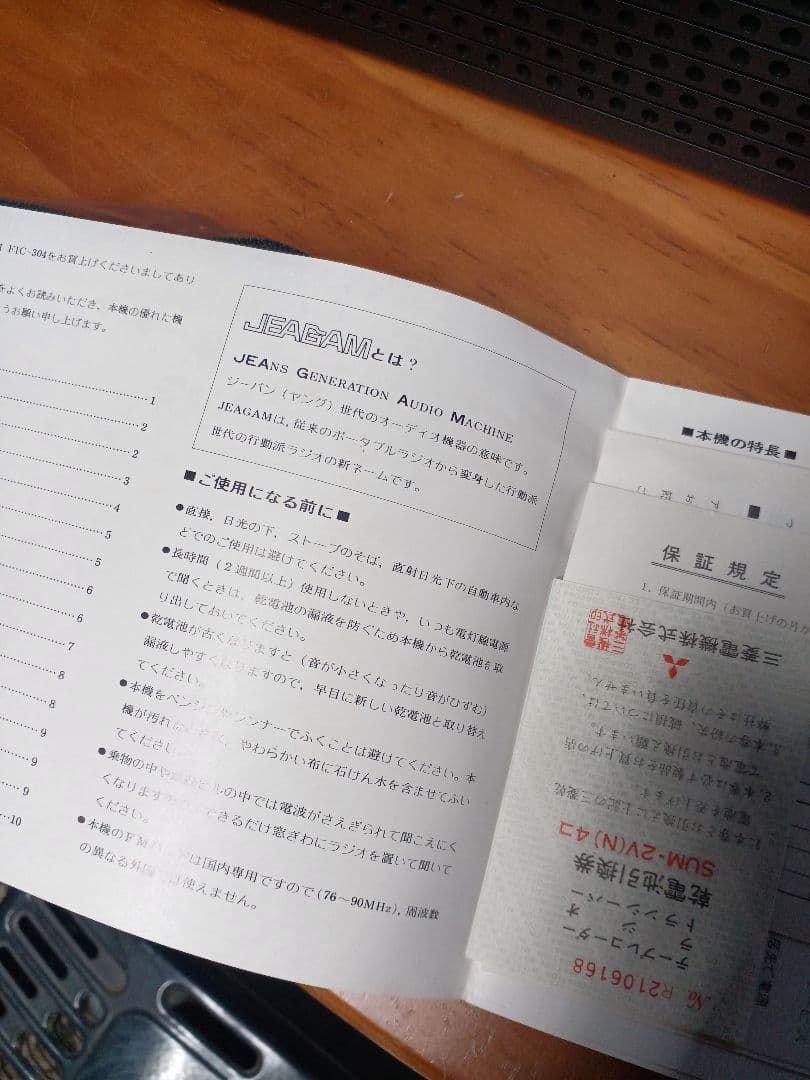 FIC-304をお買上げくださいましてあり
をよくお読みいただき，本機の優れた機
うお願い申し上げます。
1
2
2
3
4
5
5
6
6
7
8
8
9
9
9
10
JEAGAMとは？
JEANS GENERATION AUDIO MACHINE
ジーパン（ヤング）世代のオーディオ機器の意味です。
JEAGAMは，従来のポータブルラジオから変身した行動派
世代の行動派ラジオの新ネームです。
■ご使用になる前に■
●直接，日光の下，ストーブのそば，直射日光下の自動車内な
どでのご使用は避けてください。
●長時間（2週間以上）使用しないときや，いつも電灯線電源
で聞くときは，乾電池の漏液を防ぐため本機から乾電池を取
り出しておいてください。
●乾電池が古くなりますと（音が小さくなったり音がひずむ）
漏液しやすくなりますので，早目に新しい乾電池と取り替え
てください。
●本機をベンジンやシンナーでふくことは避けてください。本
機が汚れたときは，やわらかい布に石けん水を含ませてふい
てください。
●乗物の中やビルの中では電波がさえぎられて聞こえにく
くなりますので，できるだけ窓ぎわにラジオを置いて聞いて
ください。
●本機のFMバンドは国内専用ですので(76～90MHz)，周波数
の異なる外国では使えません。
■本機の特長■
保証規定
1．保証期間内（お買上げの月か
№ R2106168
テープレコーダー
ラジオ
トランシーバー
乾電池引換券
SUM-2V(N)4コ
1.本券と引換えに上記の三菱乾
電池を差し上げます。
2.本券は必ず製品をお買上げの店
で電池とお引換え願います。
3.本券の紛失，破損については，
弊社はその責任を負いません。
三菱電機株式会社